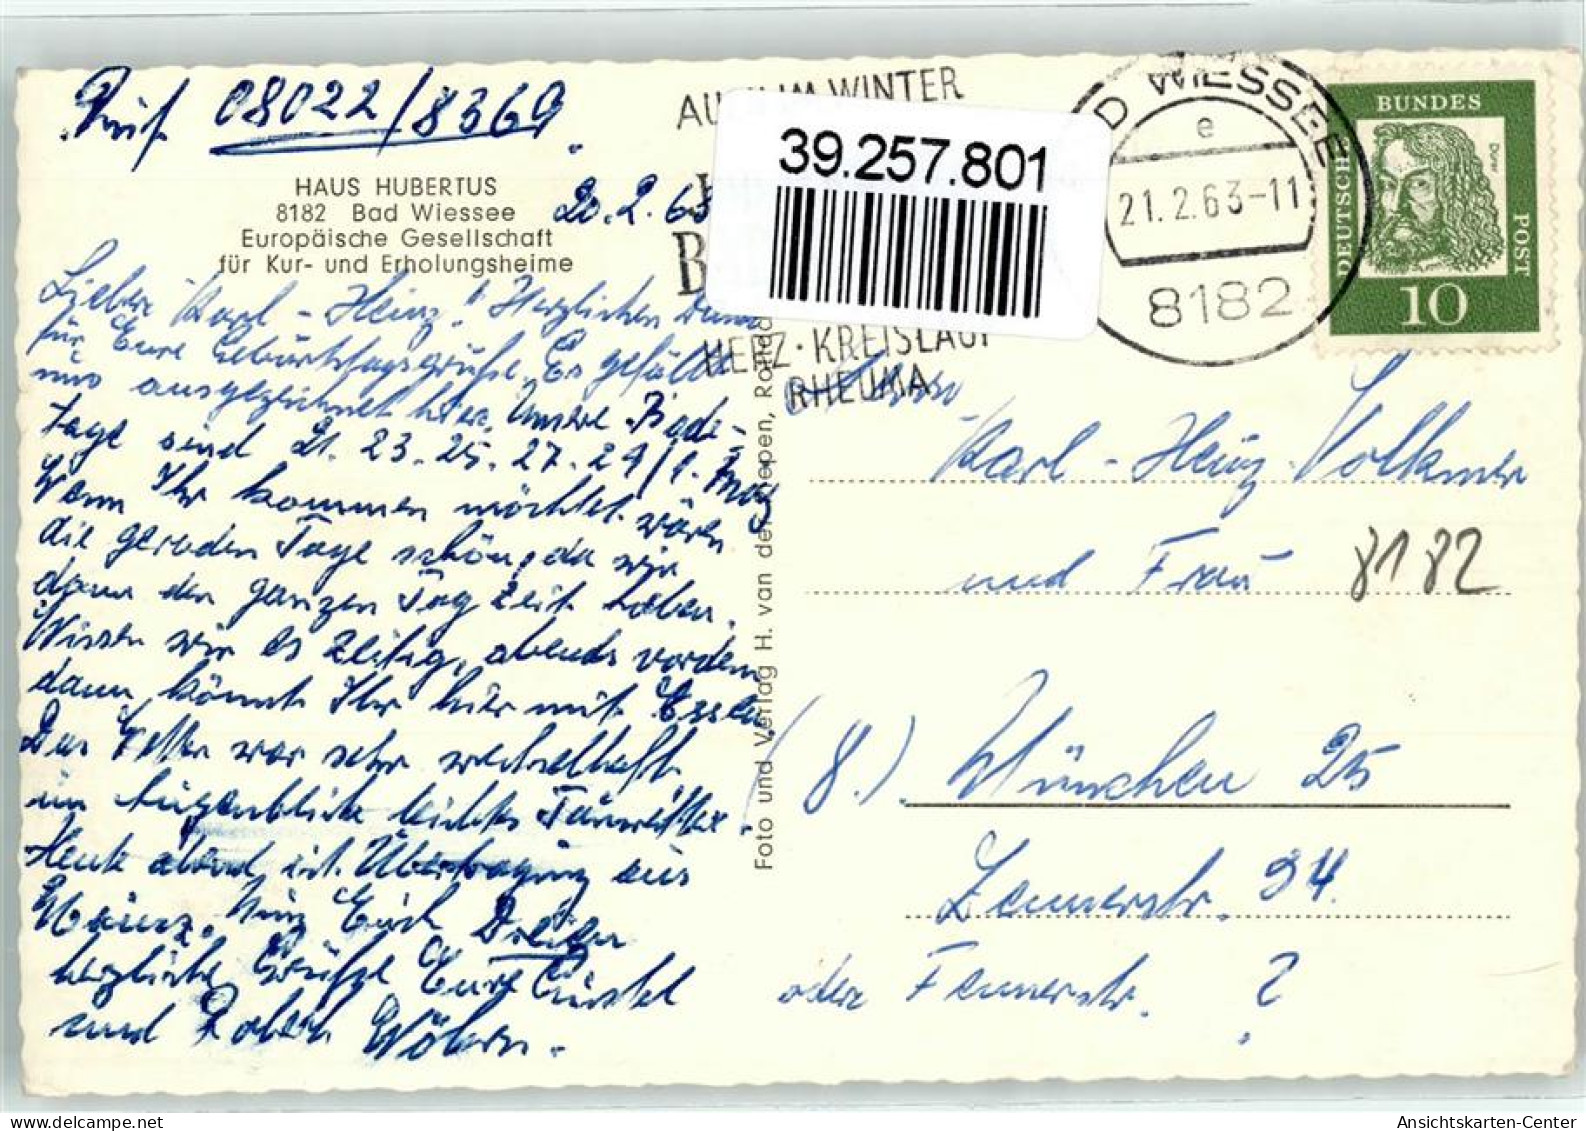 Ruf 08022/8369
HAUS HUBERTUS
8182 Bad Wiessee
Europäische Gesellschaft
für Kur- und Erholungsheime
20.2.63
Lieber Karl-Heinz! Herzlichen Dank
für Eure Geburtstagsgrüße. Es gefällt
uns ausgezeichnet hier. Unsere Bade-
tage sind 21. 23. 25. 27. 2
Wenn Ihr kommen möchtet wären
die geraden Tage schön, da wir
dann den ganzen Tag Zeit haben.
Wissen wir es zeitig, abends vordem
dann könnt Ihr hier mit Essen
Das Wetter war sehr wechselhaft
im Augenblick leichtes Tauwetter.
Heute abend ist Übertragung aus
Mainz. Euch
herzliche Grüße Eure
und Robert
Foto und Verlag H. van de
epen, Ro
AU IM WINTER
B
HERZ·KREISLAUF
RHEUMA
39.257.801
D WIESSEE
e
21.2.63-11
8182
BUNDES
DEUTSCHE
POST
Dürer
10
Karl-Heinz Volkmer
und Frau
8182
(8.) München 25
Zennerstr. 34.
oder Fennerstr. ?
Ansichtskarten-Center